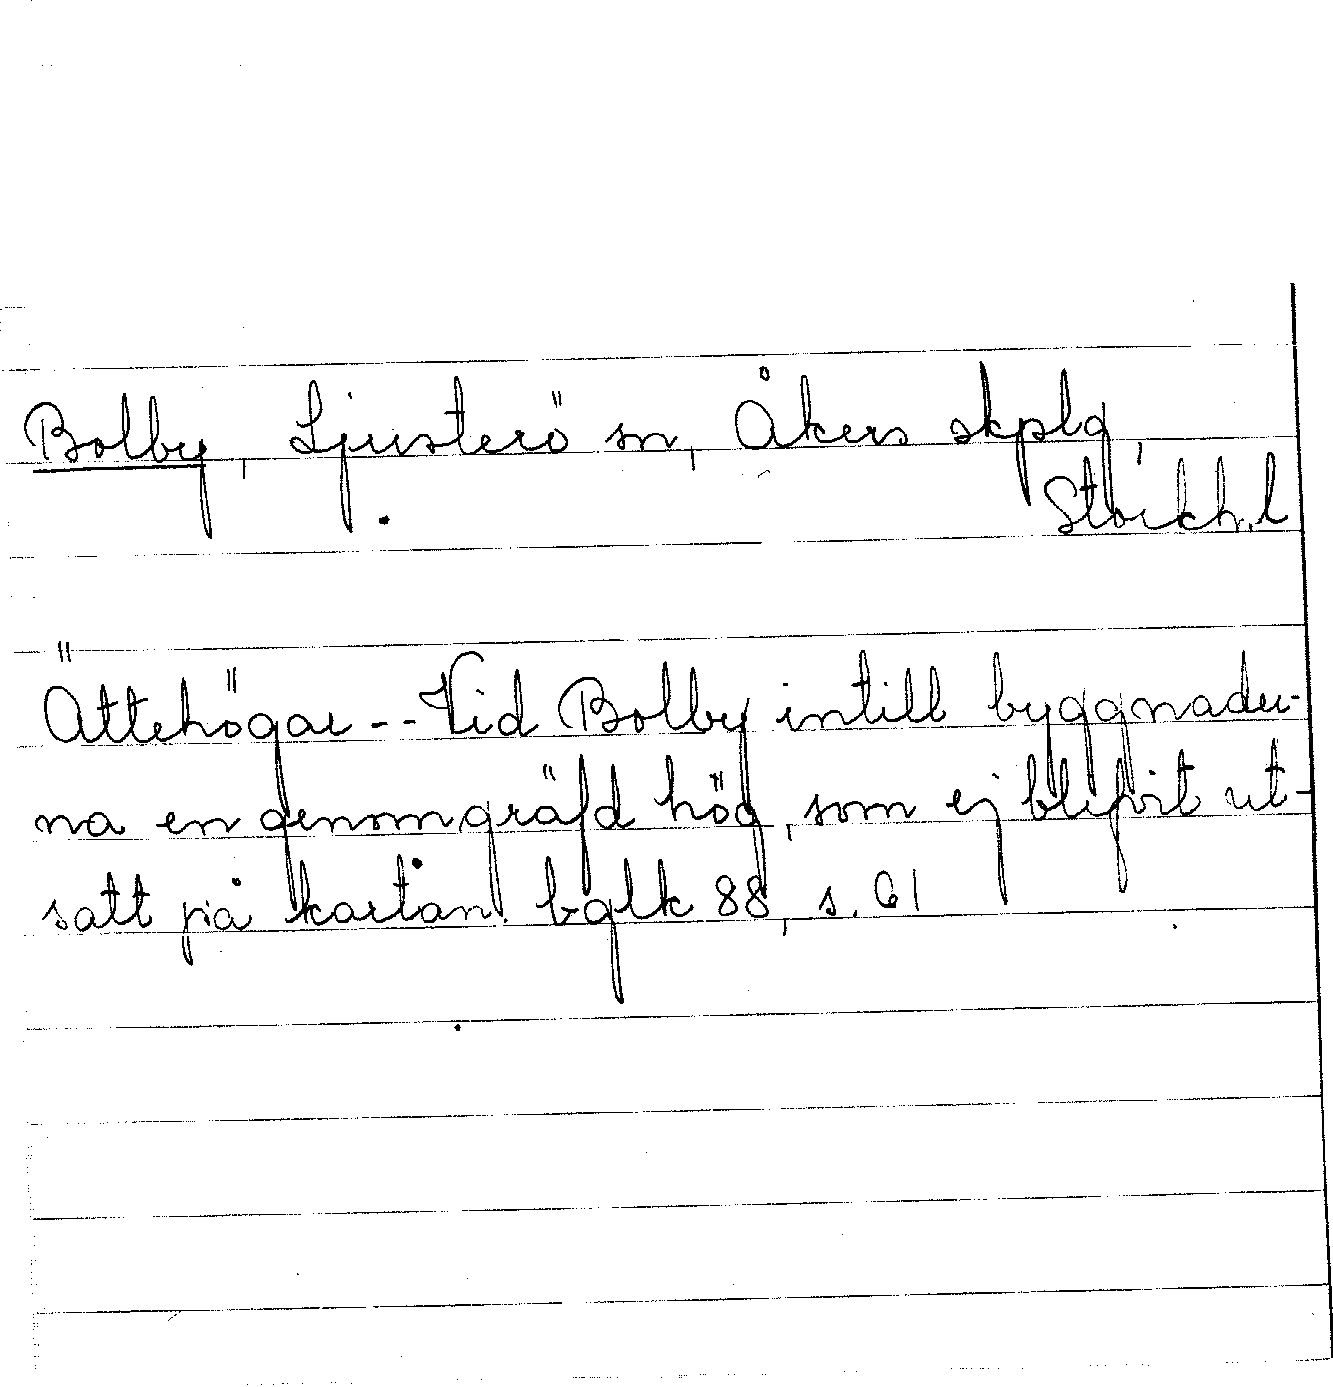 Bolby, Ljusterö sn, Åkers skplg,
Stockh. l
Ättehögar -- Vid Bolby intill byggnader-
na en genomgräfd hög, som ej blifvit ut-
satt på kartan. bglk 88, s. 61